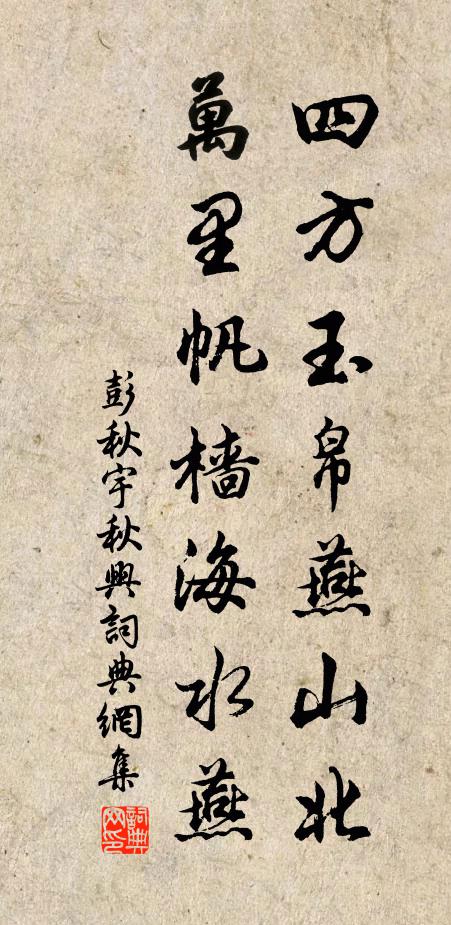 四方玉帛燕山北
萬里帆檣海水燕
彭秋宇秋興詞典網集
詞典網印